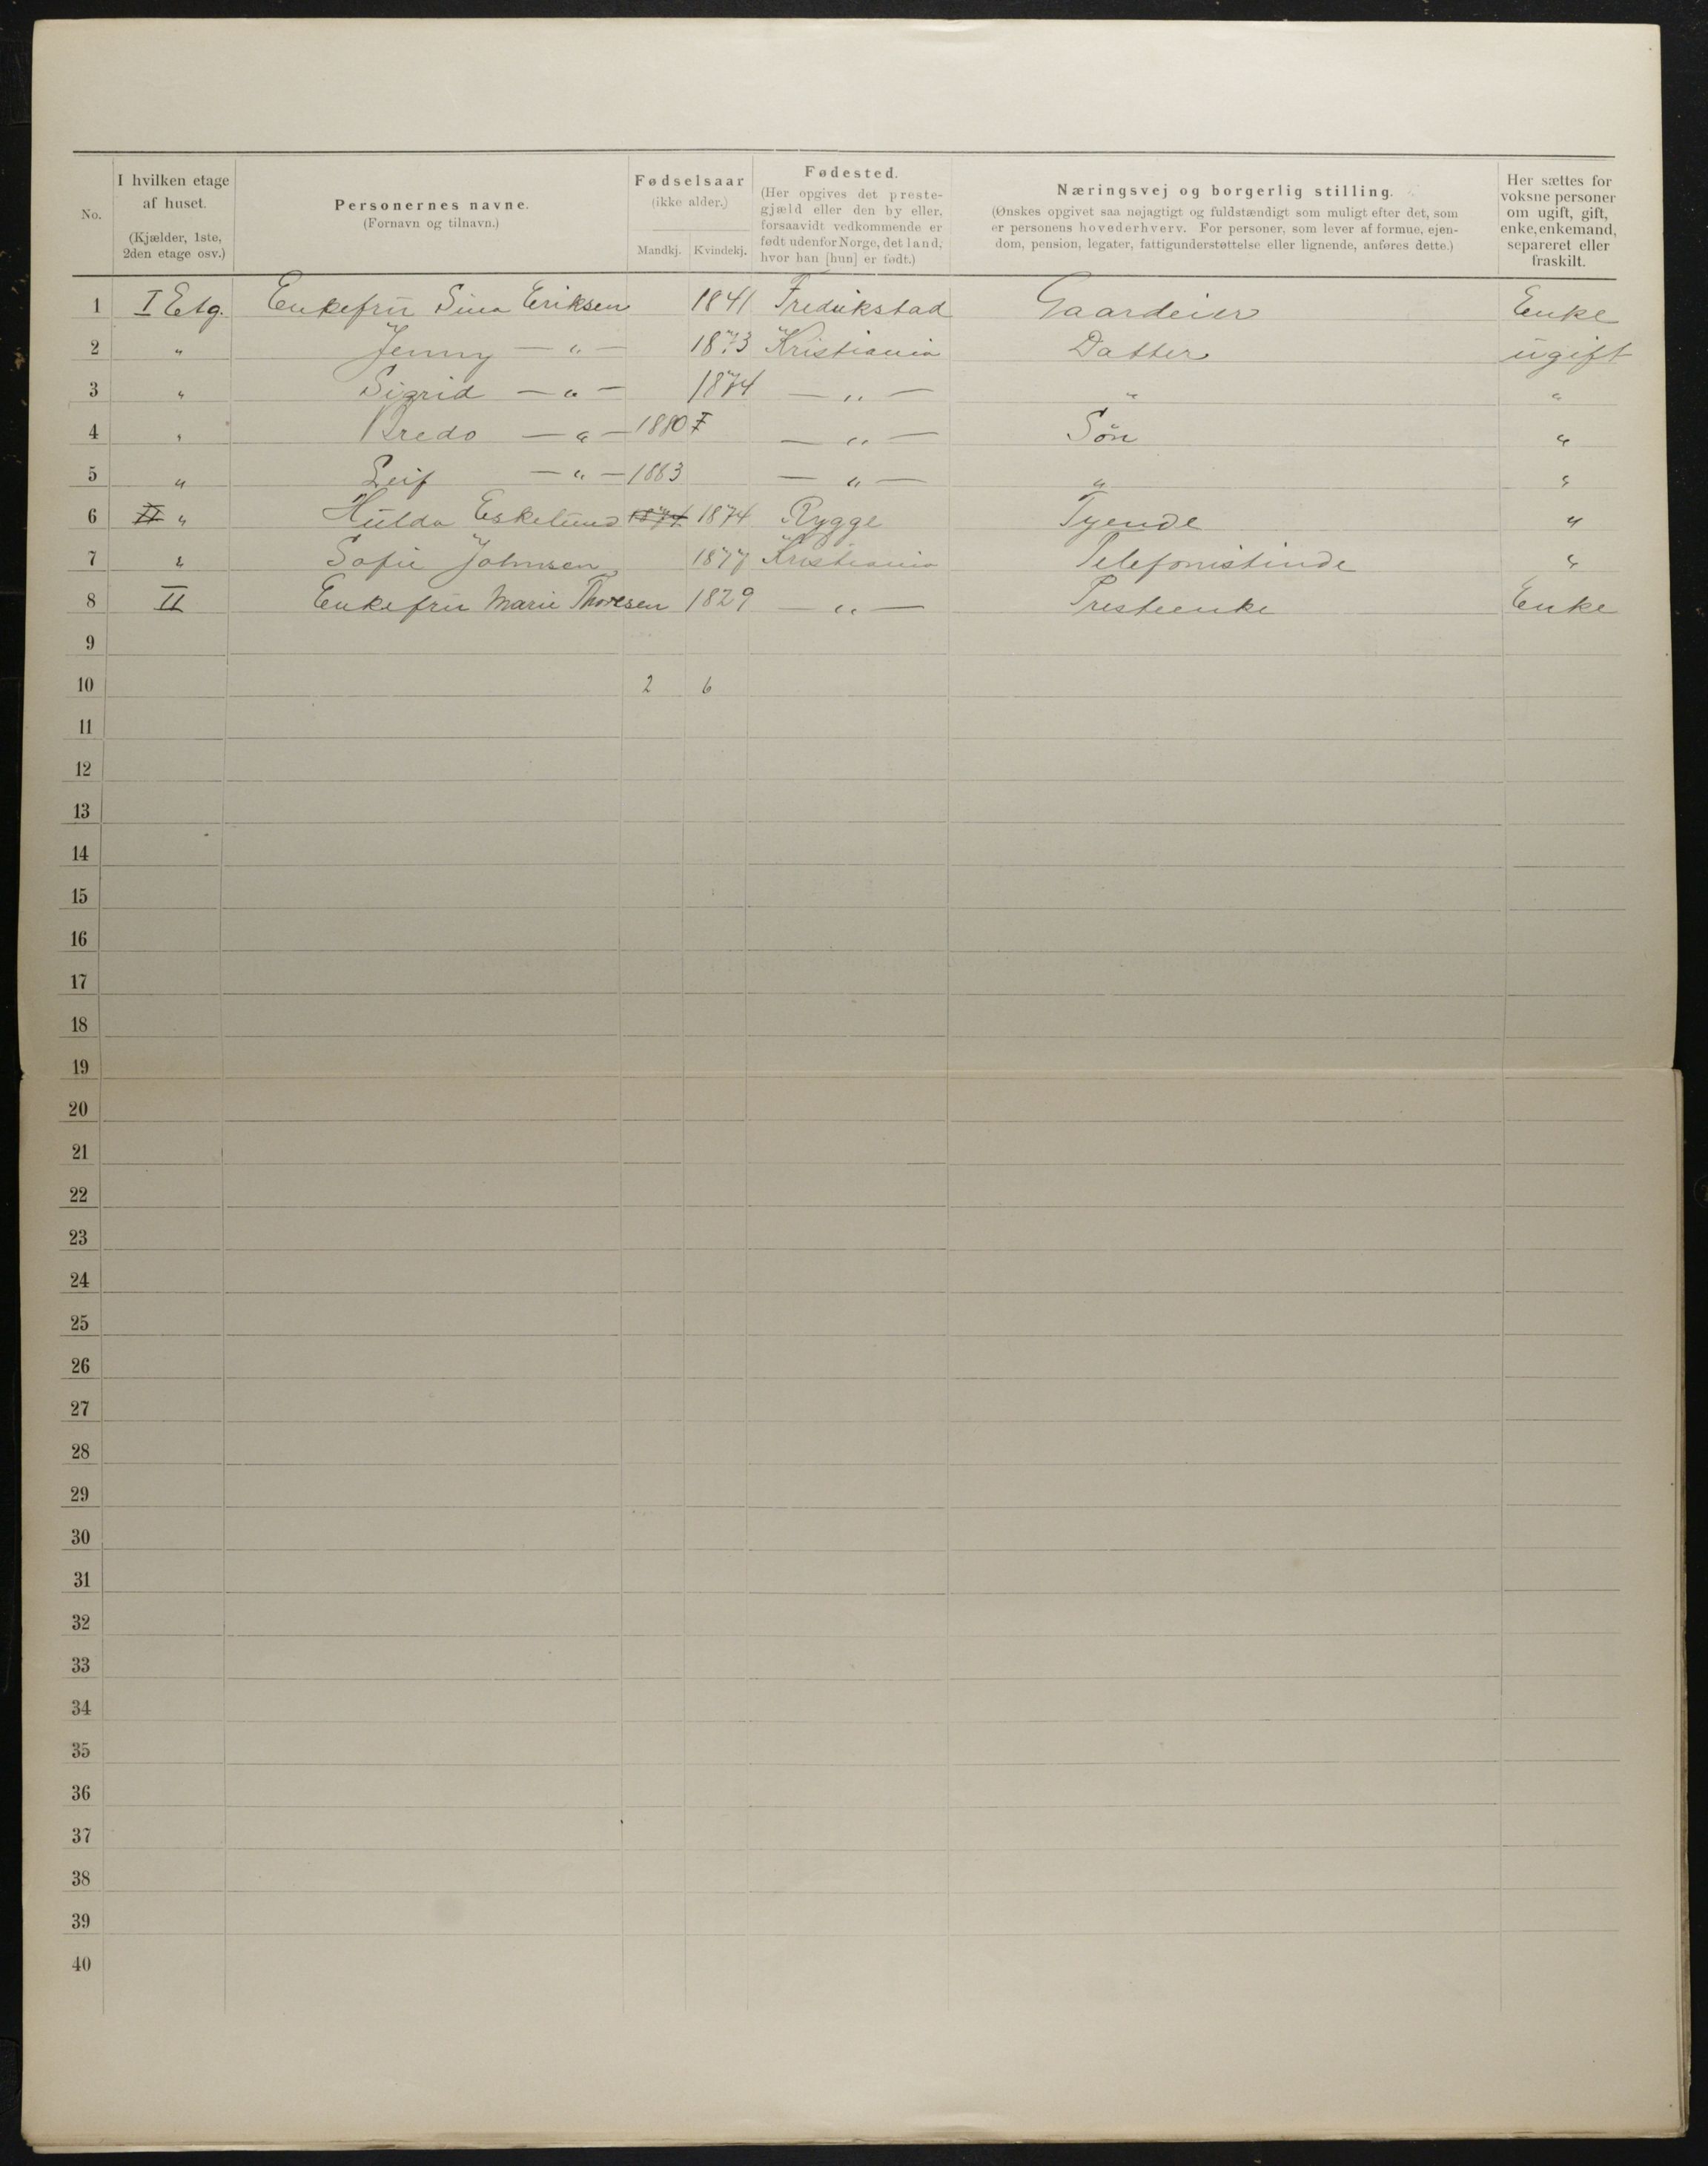 No. | I hvilken etage af huset. (Kjælder, 1ste, 2den etage osv.) | Personernes navne. (Fornavn og tilnavn.) | Fødselsaar (ikke alder.) Mandkj. Kvindekj. | Fødested. (Her opgives det prestegjæld eller den by eller, forsaavidt vedkommende er født udenfor Norge, det land, hvor han [hun] er født.) | Næringsvej og borgerlig stilling. (Ønskes opgivet saa nøjagtigt og fuldstændigt som muligt efter det, som er personens hovederhverv. For personer, som lever af formue, ejendom, pension, legater, fattigunderstøttelse eller lignende, anføres dette.) | Her sættes for voksne personer om ugift, gift, enke, enkemand, separeret eller fraskilt.
1 I Etg. Enkefru Sina Eriksen 1841 Fredrikstad Gaardeier Enke
2 " Jenny — " — 1873 Kristiania Datter ugift
3 " Sigrid — " — 1874 — " — " "
4 " Bredo — " — 1880 — " — Søn "
5 " Leif — " — 1883 — " — " "
6 II " Hulda Eskelund 1874 1874 Rygge Tyende "
7 " Sofie Johnsen 1877 Kristiania Telefonistinde "
8 II Enkefru Marie Thoresen 1829 — " — Presteenke Enke
9
10 2 6
11
12
13
14
15
16
17
18
19
20
21
22
23
24
25
26
27
28
29
30
31
32
33
34
35
36
37
38
39
40